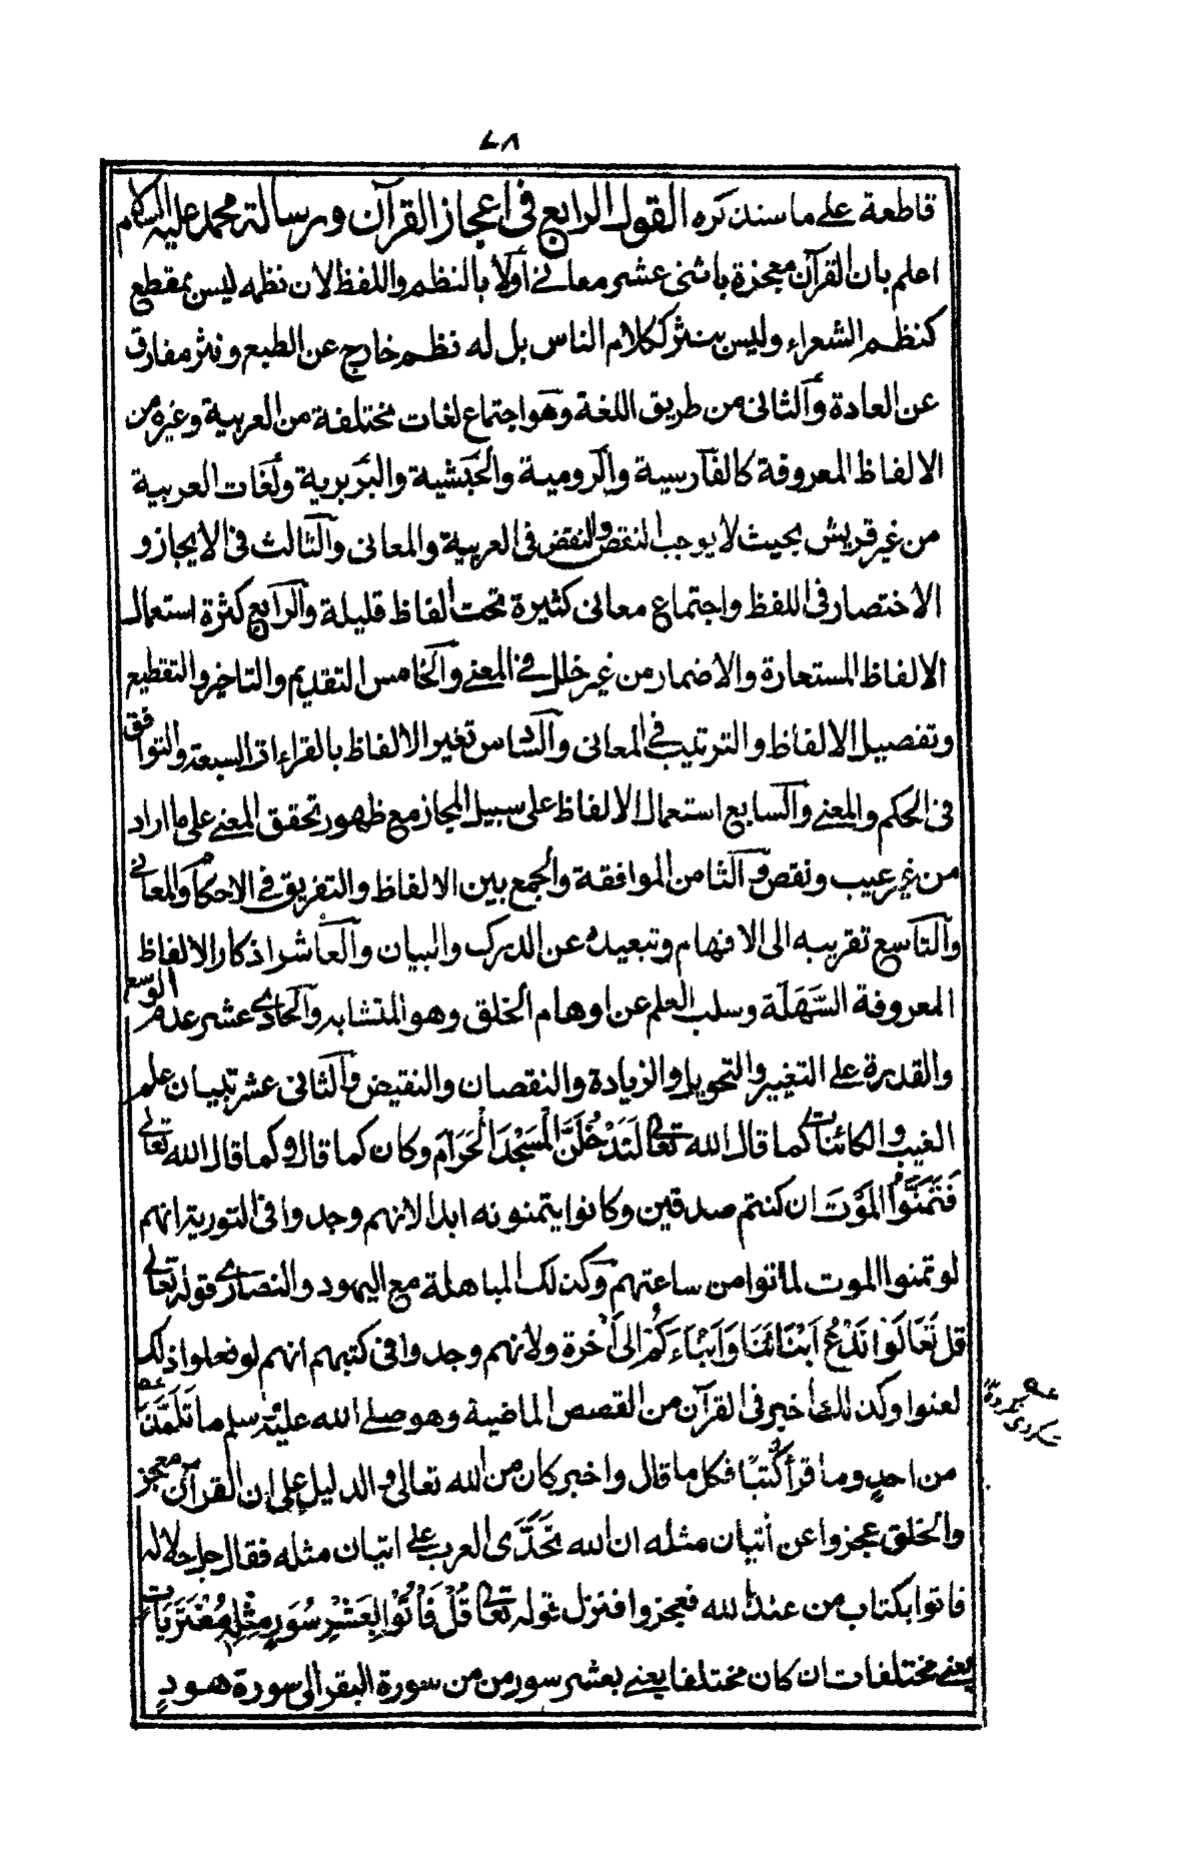 ٧٨
قاطعة على ما سنذكره القول الرابع فى اعجاز القرآن ورسالة محمد عليه السلام
اعلم بان القرآن معجزة باثنى عشر معانى اولا بالنظم واللفظ لان نظمه ليس بمقطع
كنظم الشعراء وليس بنثر ككلام الناس بل له نظم خارج عن الطبع ونثر مفارق
عن العادة والثانى من طريق اللغة وهو اجتماع لغات مختلفة من العربية وغيره من
الالفاظ المعروفة كالفارسية والرومية والحبشية والبربرية ولغات العربية
من غير قريش بحيث لا يوجب النقص والنقض فى العربية والمعانى والثالث فى الايجاز و
الاختصار فى اللفظ واجتماع معانى كثيرة تحت الفاظ قليلة والرابع كثرة استعمال
الالفاظ المستعارة والاضمار من غير خلل فى المعنى والخامس التقديم والتاخير والتقطيع
وتفصيل الالفاظ والترتيب فى المعانى والسادس تغير الالفاظ بالقراءة السبعة والتوافق
فى الحكم والمعنى والسابع استعمال الالفاظ على سبيل المجاز مع ظهور تحقق المعنى على ما اراد
من غير عيب ونقص والثامن الموافقة والجمع بين الالفاظ والتفريق فى الاحكام والمعانى
والتاسع تقريبه الى الافهام وتبعيده عن الدرك والبيان والعاشر اذكار الالفاظ
المعروفة السَّهَلَة وسلب العلم عن اوهام الخلق وهو المتشابه والحادى عشر عدم الوسع
والقدرة على التغيير والتحويل والزيادة والنقصان والنقيض والثانى عشر تبيان علم
الغيب والكائنات كما قال الله تعالى لَتَدْخُلَنَّ الْمَسْجِدَ الْحَرَامَ وكان كما قال وكما قال الله تعالى
فَتَمَنَّوُا الْمَوْتَ ان كنتم صدقين وكانوا يتمنونه ابدا لانهم وجدوا فى التورية انهم
لو تمنوا الموت لماتوا من ساعتهم وكذلك المباهلة مع اليهود والنصارى قوله تعالى
قل تَعَالَوْا نَدْعُ اَبْنَائَنَا وَاَبْنَاءَكُمْ الى آخرة ولانهم وجدوا فى كتبهم انهم لو فعلوا ذلك
لعنوا وكذلك ما خبر فى القرآن من القصص الماضية وهو صلى الله عليه وسلم ما تَلَمَّذَ
من احدٍ وما قرأ كُتبًا فكل ما قال واخبر كان من الله تعالى والدليل على ان القرآن معجز
والخلق عجزوا عن اتيان مثله ان الله تَحَدَّى العرب على اتيان مثله فقال جل جلاله
فاتوا بكتاب من عند الله فعجزوا فنزل قوله تعالى قُلْ فَأْتُوْا بِعَشْرِ سُوَرٍ مِثْلِهِ مُفْتَرَيَات
يعنى مختلفات ان كان مختلفا يعنى بعشر سور من من سورة البقر الى سورة هود